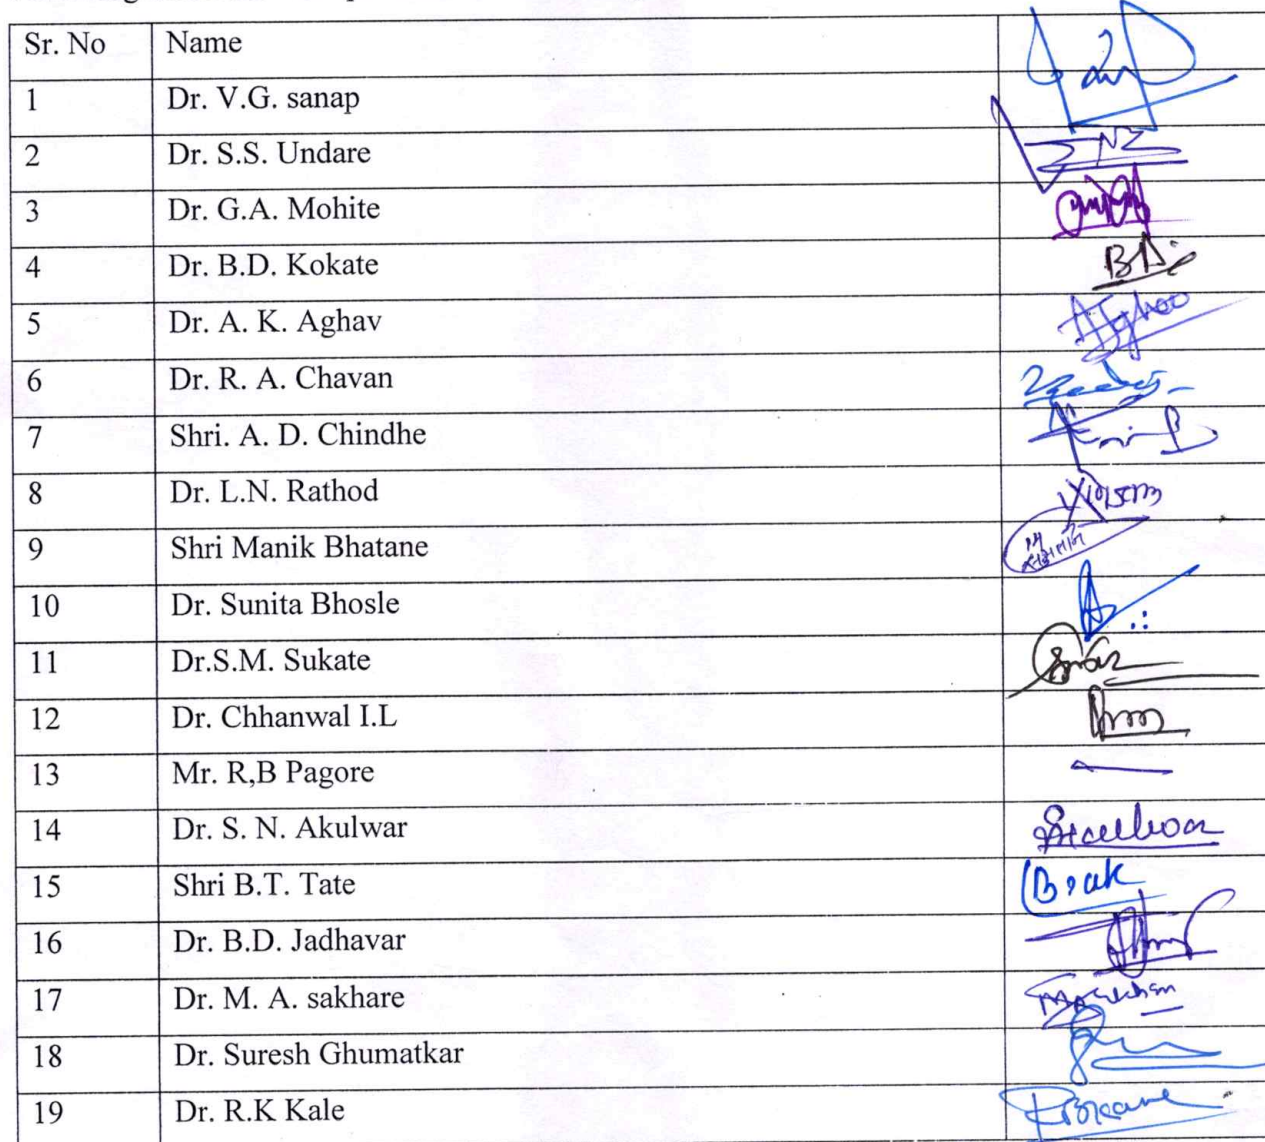 Sr. No Name
1 Dr. V.G. sanap
2 Dr. S.S. Undare
3 Dr. G.A. Mohite
4 Dr. B.D. Kokate
5 Dr. A. K. Aghav
6 Dr. R. A. Chavan
7 Shri. A. D. Chindhe
8 Dr. L.N. Rathod
9 Shri Manik Bhatane
10 Dr. Sunita Bhosle
11 Dr.S.M. Sukate
12 Dr. Chhanwal I.L
13 Mr. R,B Pagore
14 Dr. S. N. Akulwar
15 Shri B.T. Tate
16 Dr. B.D. Jadhavar
17 Dr. M. A. sakhare
18 Dr. Suresh Ghumatkar
19 Dr. R.K Kale